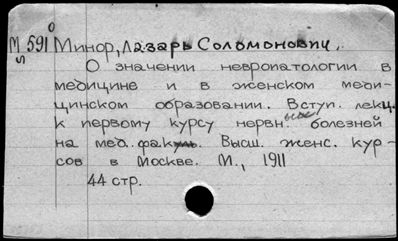 М 591⁰ Минор, Лазарь Соломонович.
S
О значении невропатологии в
медицине и в женском меди-
цинском образовании. Вступ. лекц.
к первому курсу нервн. болезней
на мед. фак. Высш. женс. кур-
сов в Москве. М., 1911
44 стр.